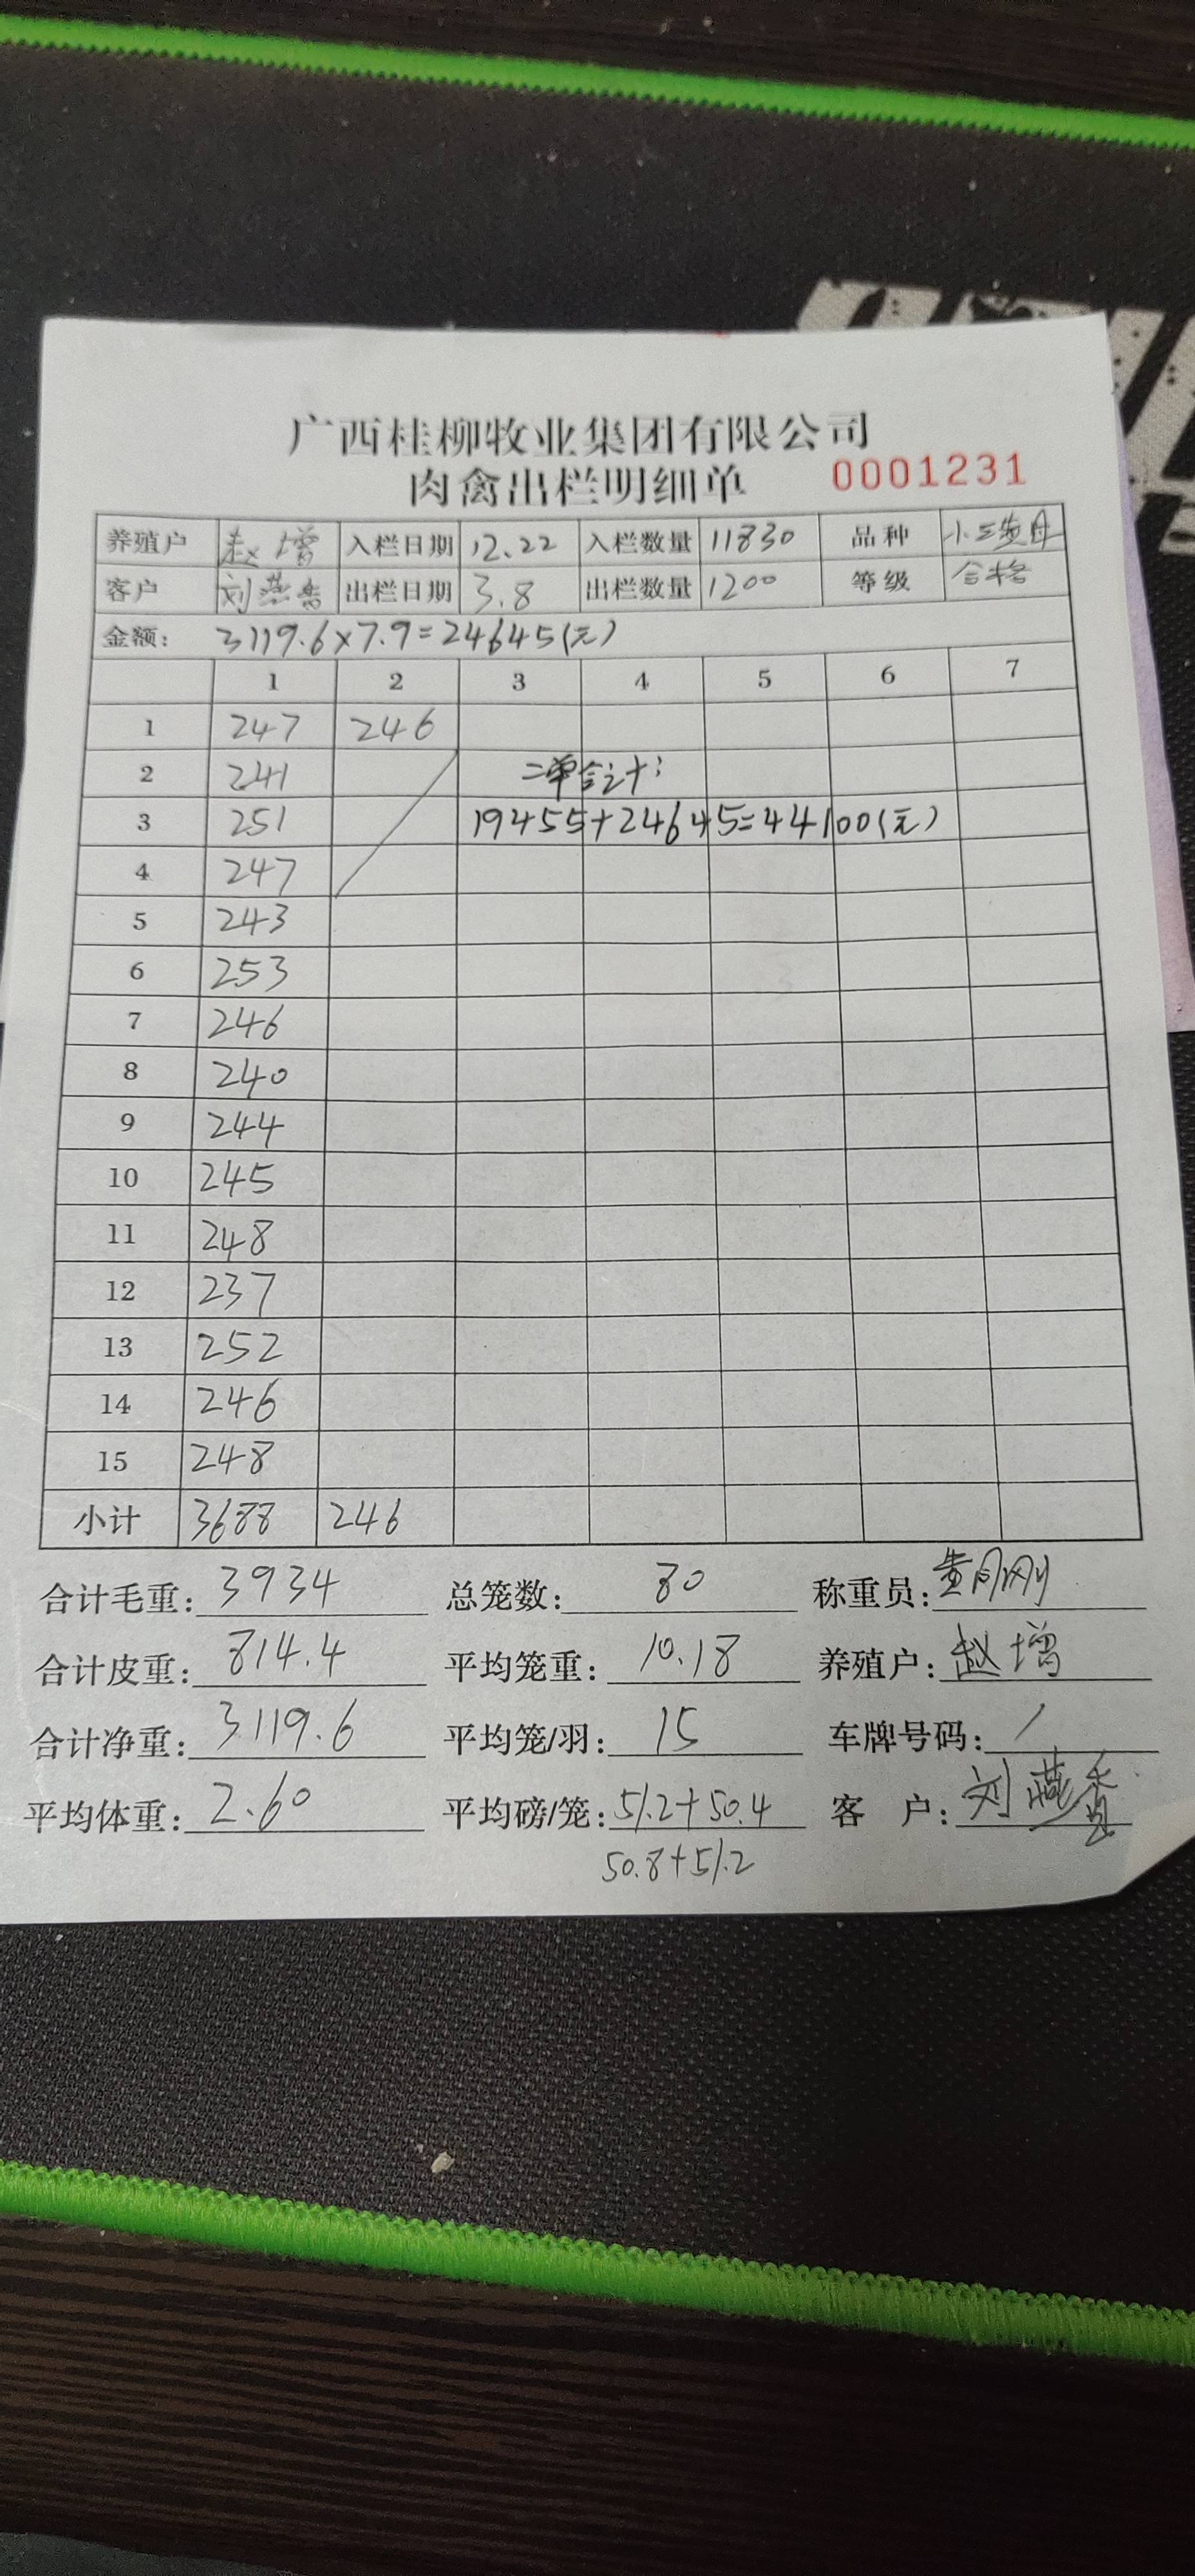 广西桂柳牧业集团有限公司
肉禽出栏明细单 0001231
养殖户 赵增 入栏日期 12.22 入栏数量 11830 品种 小三黄母
客户 刘燕香 出栏日期 3.8 出栏数量 1200 等级 合格
金额: 3119.6×7.9=24645(元)
1 2 3 4 5 6 7
1 247 246
2 241 二单合计:
3 251 19455+24645=44100(元)
4 247
5 243
6 253
7 246
8 240
9 244
10 245
11 248
12 237
13 252
14 246
15 248
小计 3688 246
合计毛重: 3934 总笼数: 80 称重员: 黄刚刚
合计皮重: 814.4 平均笼重: 10.18 养殖户: 赵增
合计净重: 3119.6 平均笼/羽: 15 车牌号码: /
平均体重: 2.60 平均磅/笼: 51.2+50.4 客 户: 刘燕香
50.8+51.2